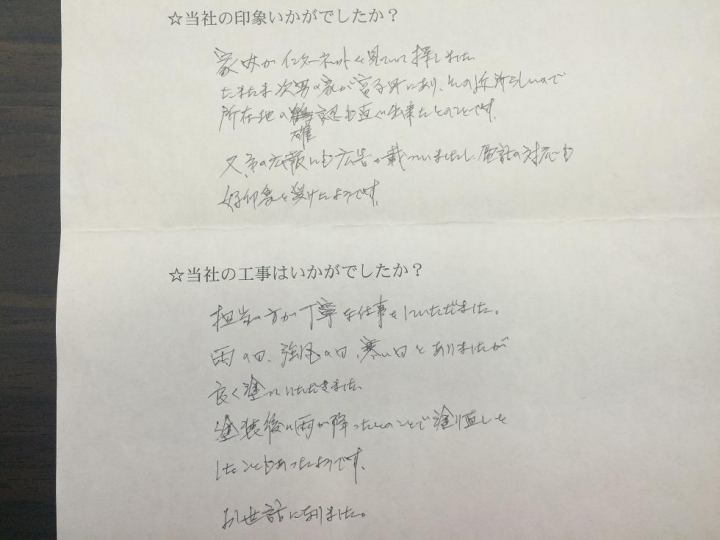 ☆当社の印象いかがでしたか？
家内がインターネットを見ていて探しました
たまたま次男の家が宮子町にあり、その近所らしいので
所在地の確認も直ぐ出来たとのことです。
又、市の広報にも広告が載っていましたし、電話の対応も
好印象を受けたようです。
☆当社の工事はいかがでしたか？
担当の方が丁寧な仕事をしていただきました。
雨の日、強風の日、寒い日とありましたが
良く塗っていただきました。
塗装後に雨が降ったとのことで塗り直しを
したこともあったようです。
お世話になりました。